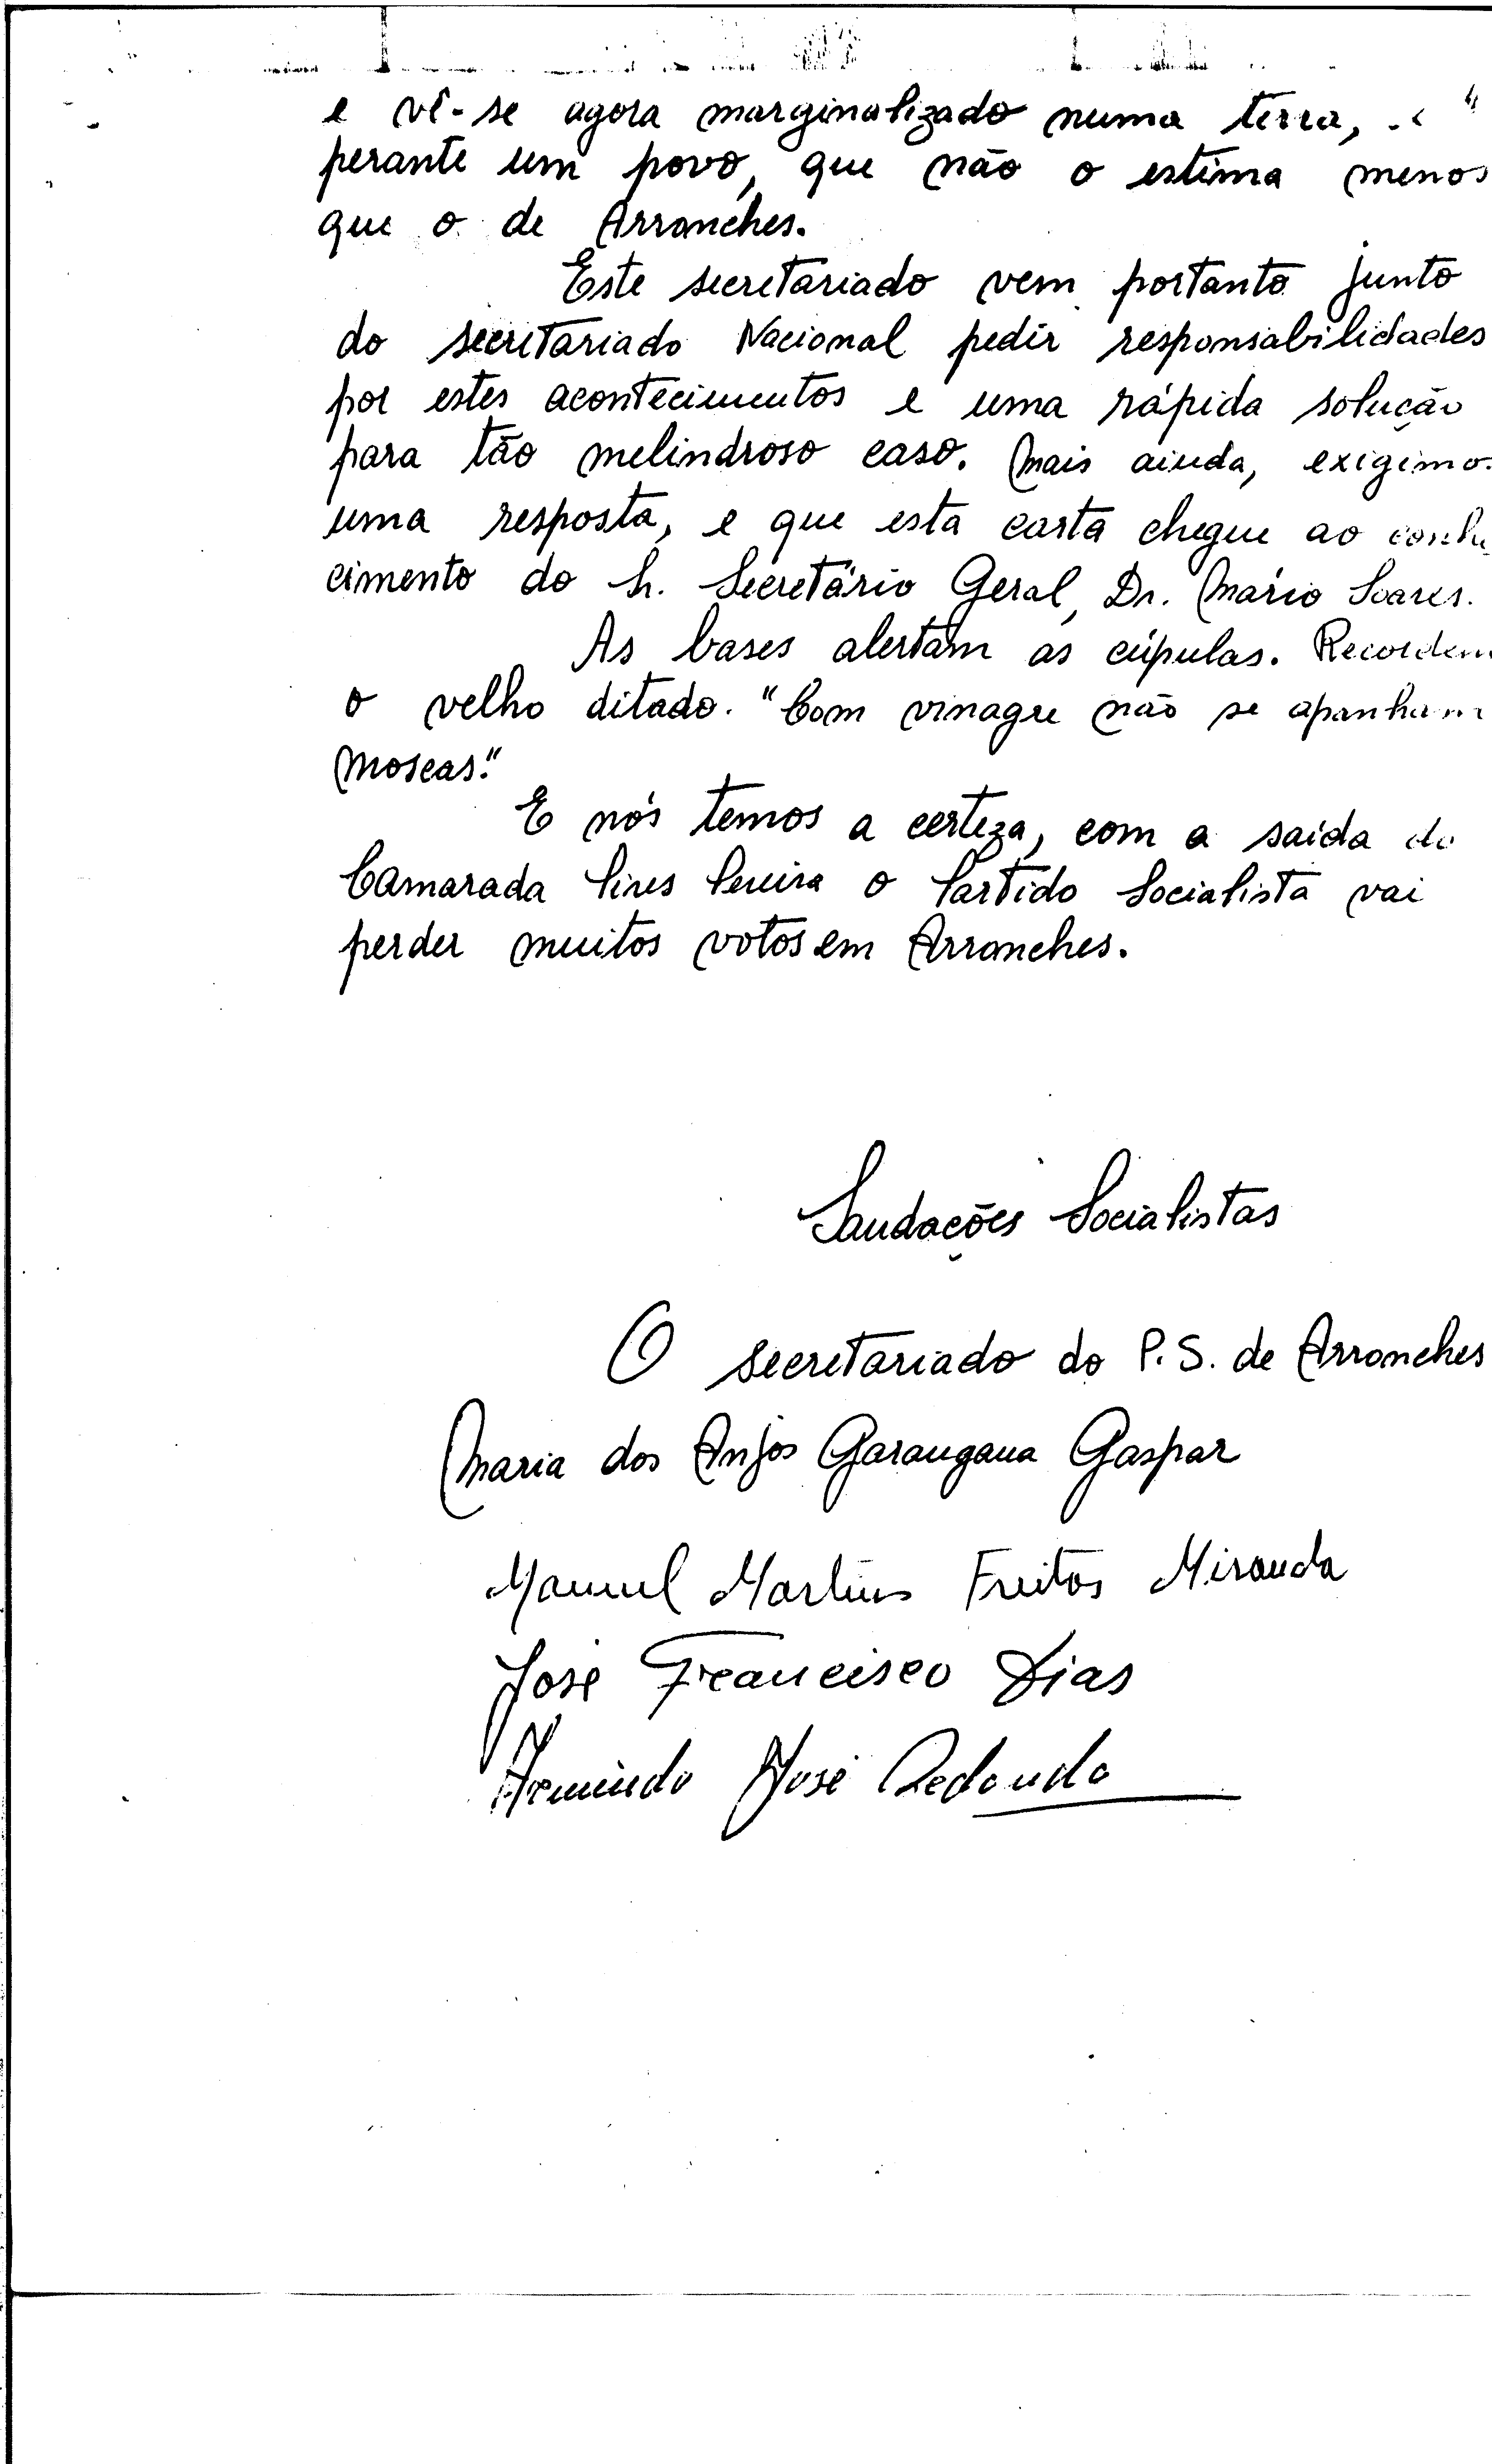 e vê-se agora marginalizado numa terra, e
perante um povo, que não o estima menos
que o de Arronches.
Este secretariado vem portanto junto
do secretariado Nacional pedir responsabilidades
por estes acontecimentos e uma rápida solução
para tão melindroso caso. Mais ainda, exigimo
uma resposta, e que esta carta chegue ao conhe
cimento do Sr. Secretário Geral, Dr. Mário Soares.
As bases alertam as cúpulas. Recordem
o velho ditado. "Com vinagre não se apanham
moscas."
E nós temos a certeza, com a saída do
Camarada Pires Pereira o Partido Socialista vai
perder muitos votos em Arronches.
Saudações Socialistas
O secretariado do P.S. de Arronches
Maria dos Anjos Garangana Gaspar
Manuel Martins Freitas Miranda
José Francisco Dias
Armindo José Redondo